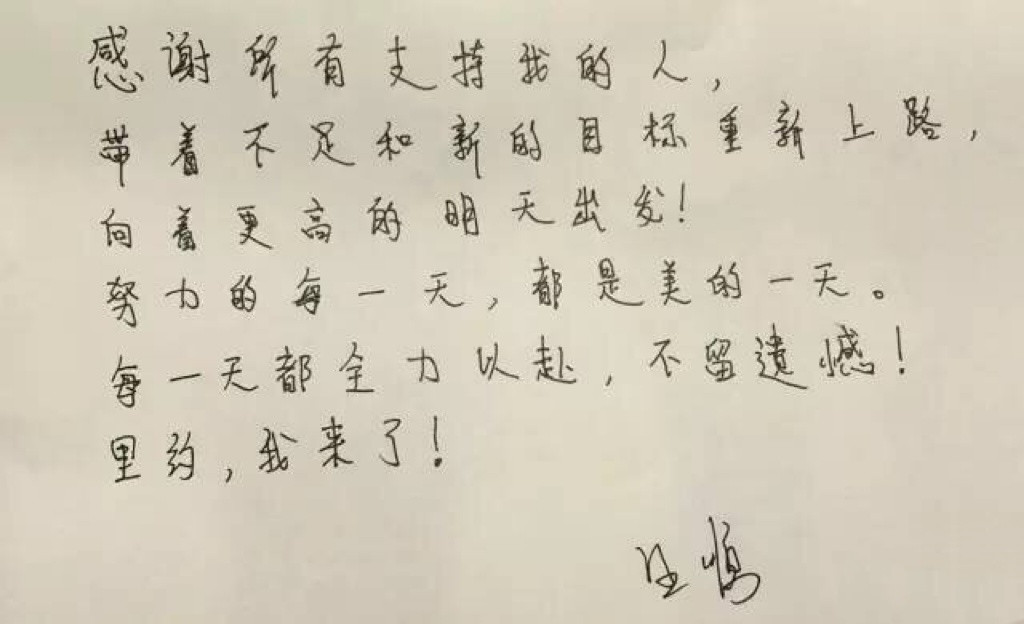 感谢所有支持我的人,
带着不足和新的目标重新上路,
向着更高的明天出发!
努力的每一天,都是美的一天。
每一天都全力以赴,不留遗憾!
里约,我来了!